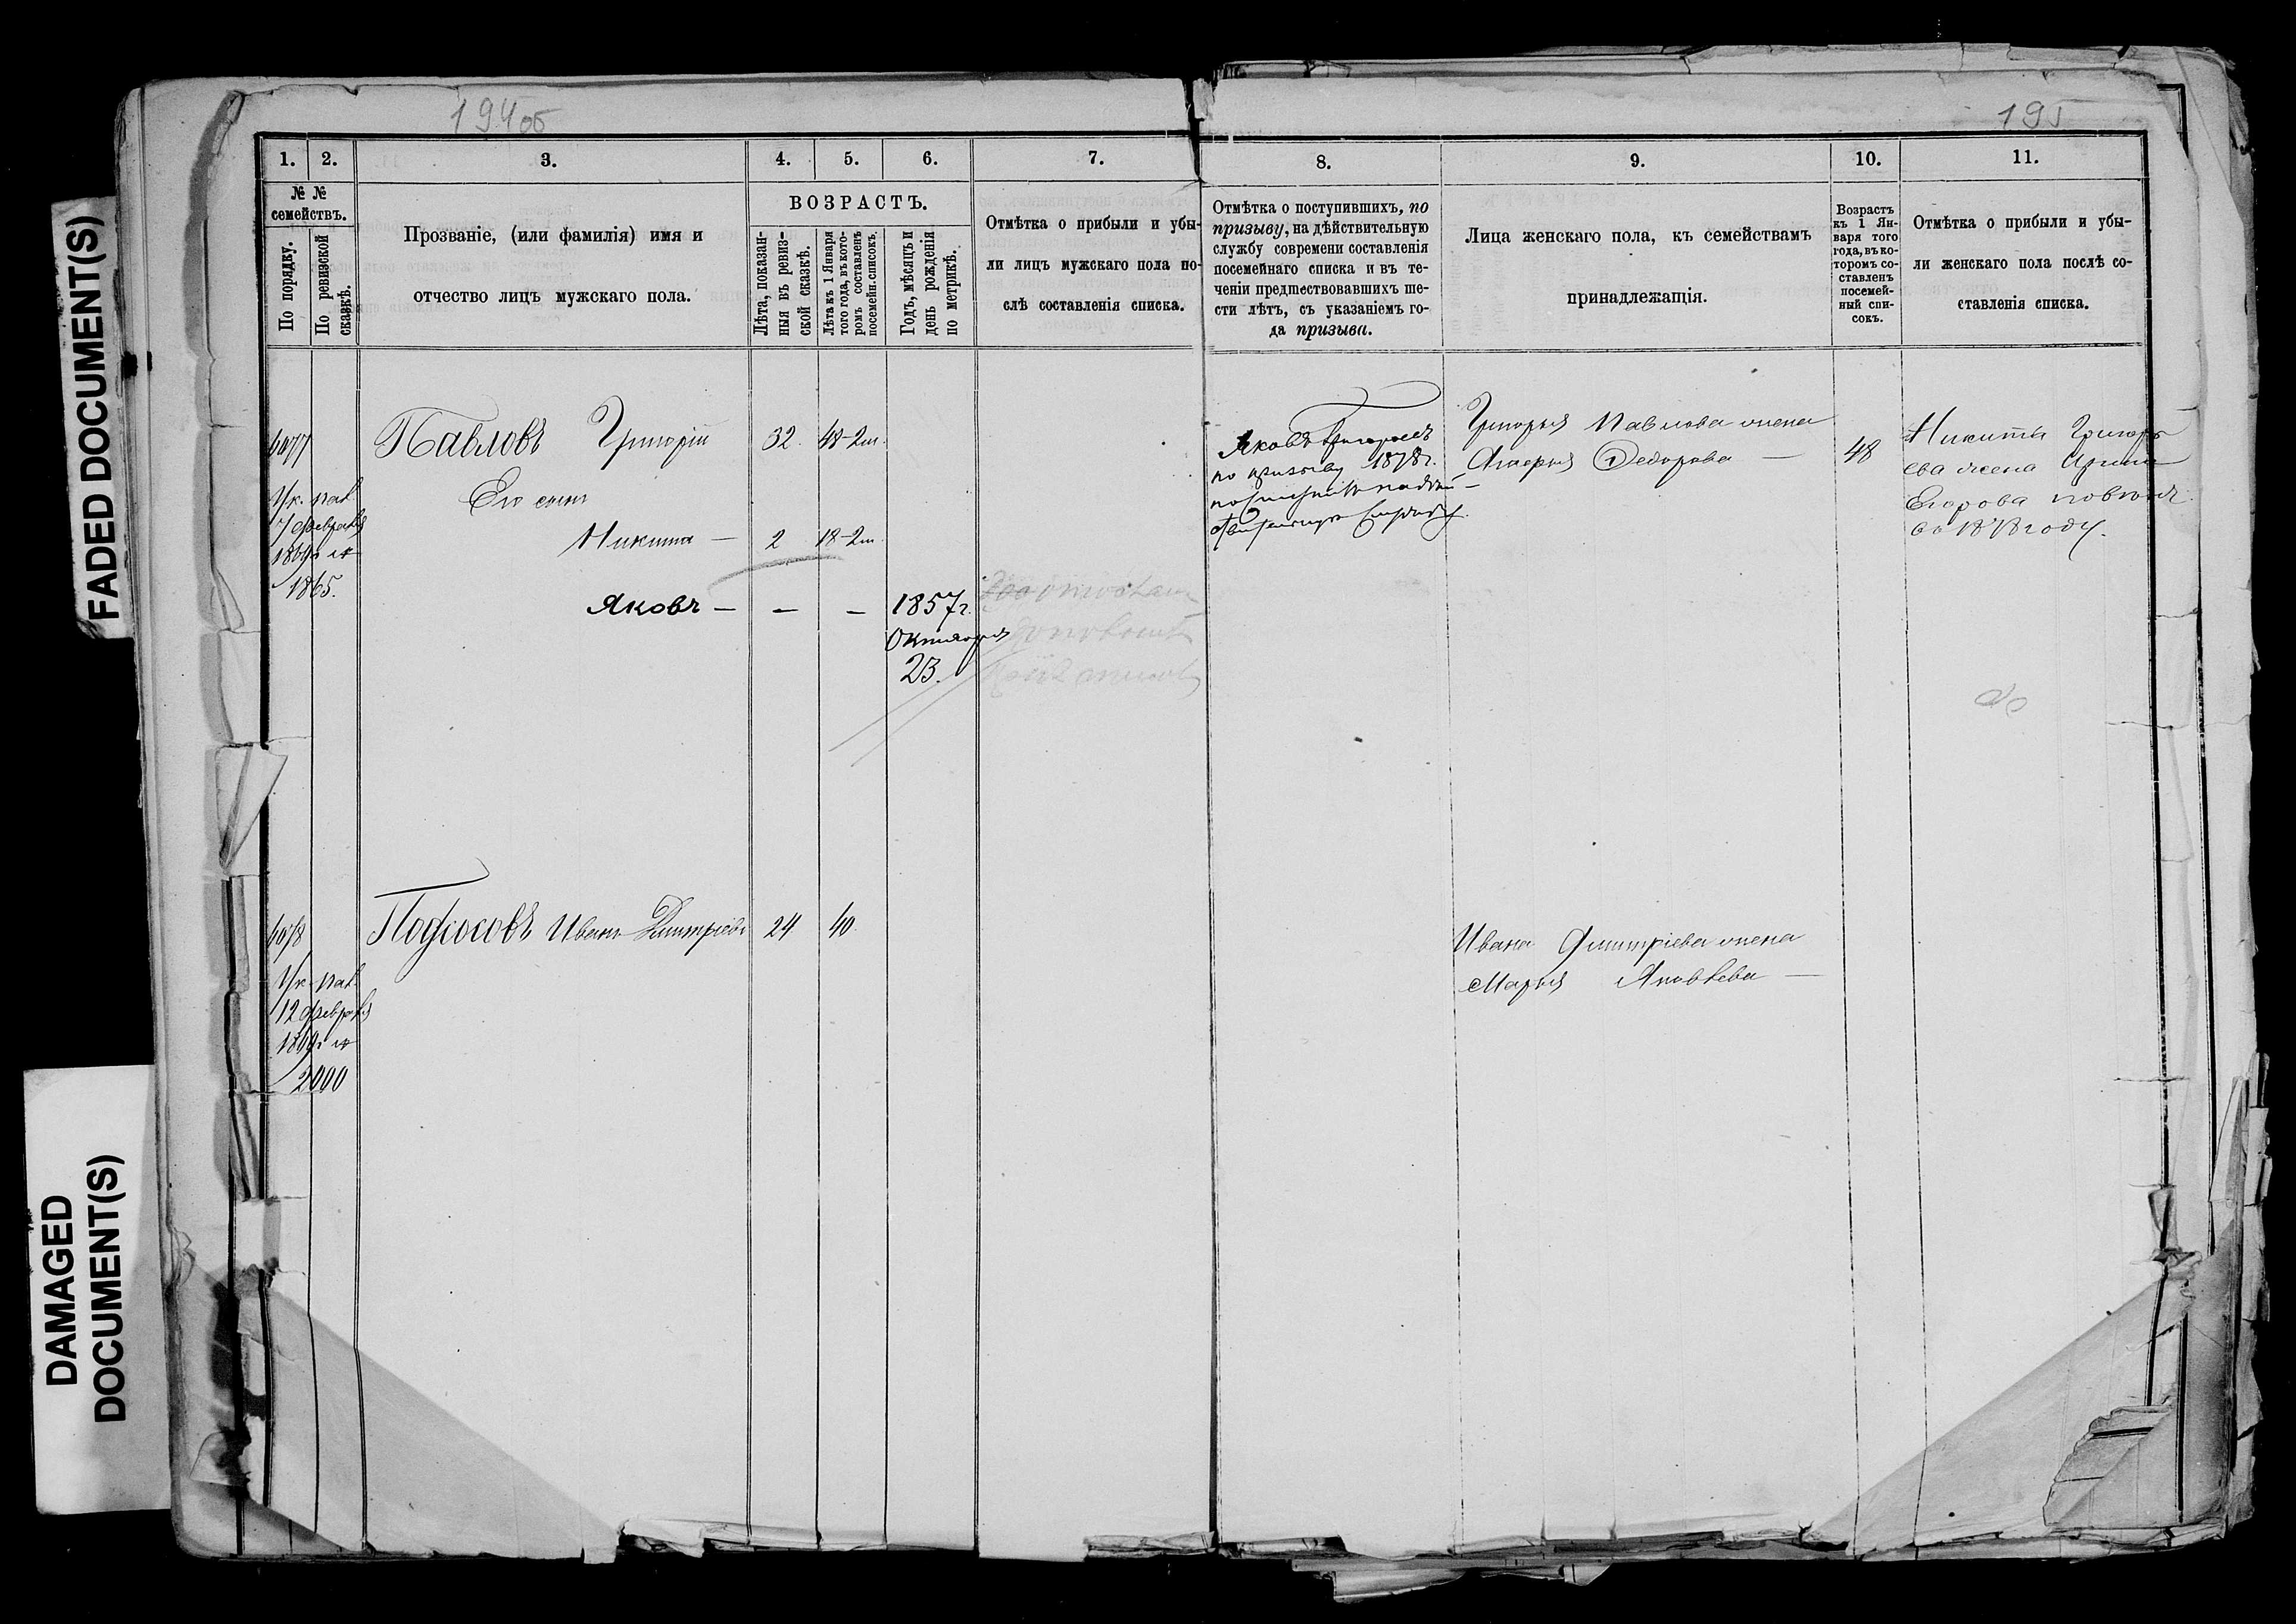 FADED DOCUMENT(S)
DAMAGED
DOCUMENT(S)
194об
195
1.
2.
3.
4.
5.
6.
7.
8.
9.
10.
11.
№ №
семействъ.
По порядку.
По ревизской
сказкѣ.
Прозваніе, (или фамилія) имя и
отчество лицъ мужскаго пола.
ВОЗРАСТЪ.
Лѣта, показан-
ныя въ ревиз-
ской сказкѣ.
Лѣта къ 1 Января
того года, въ кото-
ромъ составленъ
посемейн. списокъ.
Годъ, мѣсяцъ и
день рожденія
по метрикѣ.
Отмѣтка о прибыли и убы-
ли лицъ мужскаго пола по-
слѣ составленія списка.
Отмѣтка о поступившихъ, по
призыву, на дѣйствительную
службу современи составленія
посемейнаго списка и въ те-
ченіи предшествовавшихъ ше-
сти лѣтъ, съ указаніемъ го-
да призыва.
Лица женскаго пола, къ семействамъ
принадлежащія.
Возрастъ
къ 1 Ян-
варя того
года, въ ко-
торомъ со-
ставленъ
посемей-
ный спи-
сокъ.
Отмѣтка о прибыли и убы-
ли женскаго пола послѣ со-
ставленія списка.
4077
Ук. пал.
7 февраля
1869г №
1865.
Павловъ Григорій
32.
48-2м.
Его сын
Никита —
2
18-2м.
Яковъ — — —
1857г.
Октября
23.
Яковъ Григорьевъ
по призыву 1878г.
службу.
Григорья Павлова жена
Федорова —
48
Никиты Григорь
ева жена Ирина
Егорова
въ 1878 году.
4078
Ук. пал.
12 февраля
1869г №
2000
Иванъ Дмитріевъ
24
40.
Ивана Дмитріева жена
Марья Яковлева —